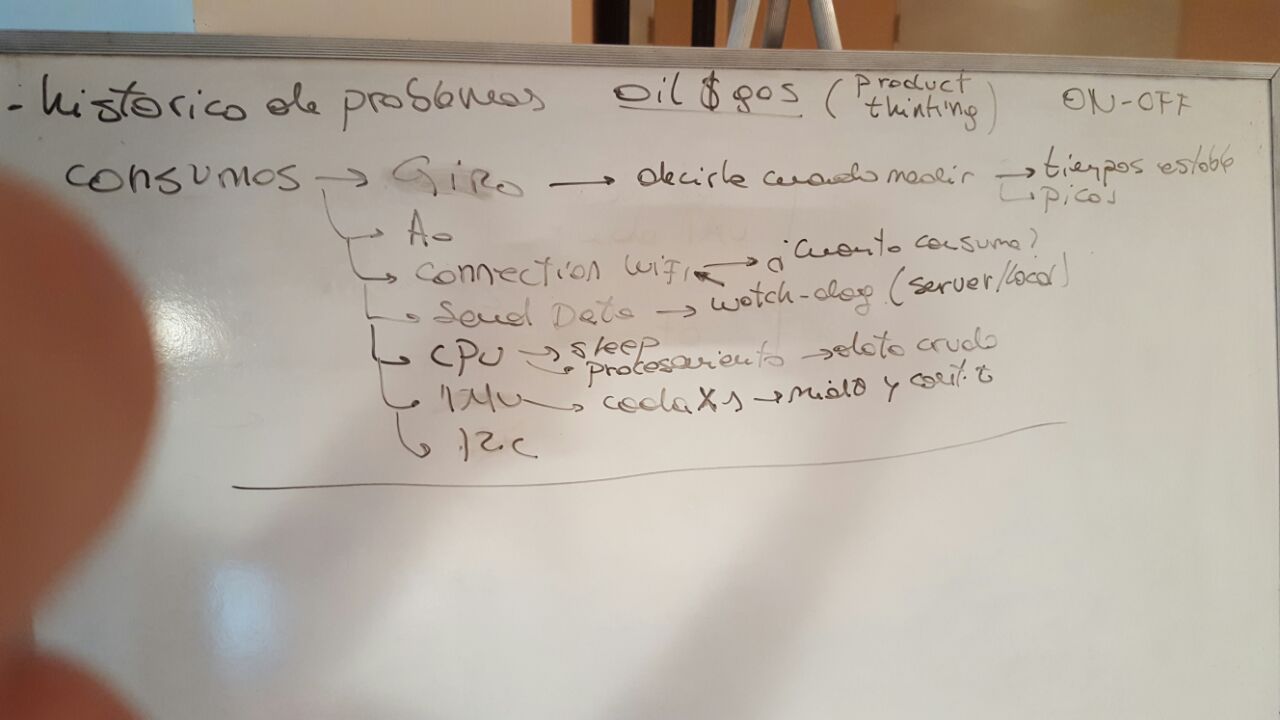 - historico de problemas oil $ gas (product thinking) ON-OFF
consumos → Giro → decirle cuando medir → tiempos estable
→ picos
→ Ao
→ connection wifi → ¿Cuanto consume?
→ Send Data → watch-dog (server/local)
→ CPU → sleep
→ procesamiento → dato crudo
→ IMU → cada X s → mido y
→ I2C